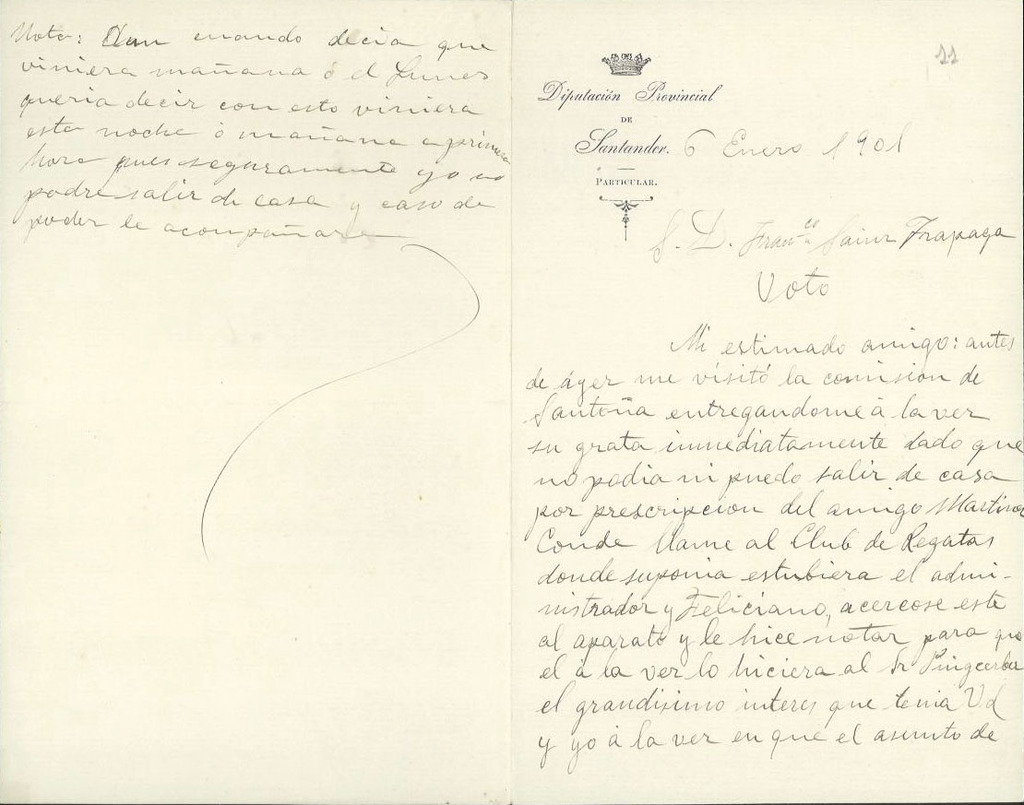 Nota: Aun cuando decia que
viniera mañana ó el Lunes
queria decir con esto viniera
esta noche ó mañana a primera
hora pues seguramente yo no
podre salir de casa y caso de
poder le acompañare
11
Diputación Provincial
DE
Santander. 6 Enero 1901
PARTICULAR.
S. D. Fran.co Sainz Trapaga
Voto
Mi estimado amigo: antes
de áyer me vísitó la comision de
Santoña entregandome à la ver
su grata immediatamente dado que
no podia ni puedo salir de casa
por prescripcion del amigo Martinez
Conde llame al Club de Regatas
donde suponia estubiera el admi-
nistrador y Feliciano, acercose este
al aparato y le hice notar para que
el à la ver lo hiciera al Sr
el grandisimo interes que tenia Vd
y yo à la ver en que el asunto de